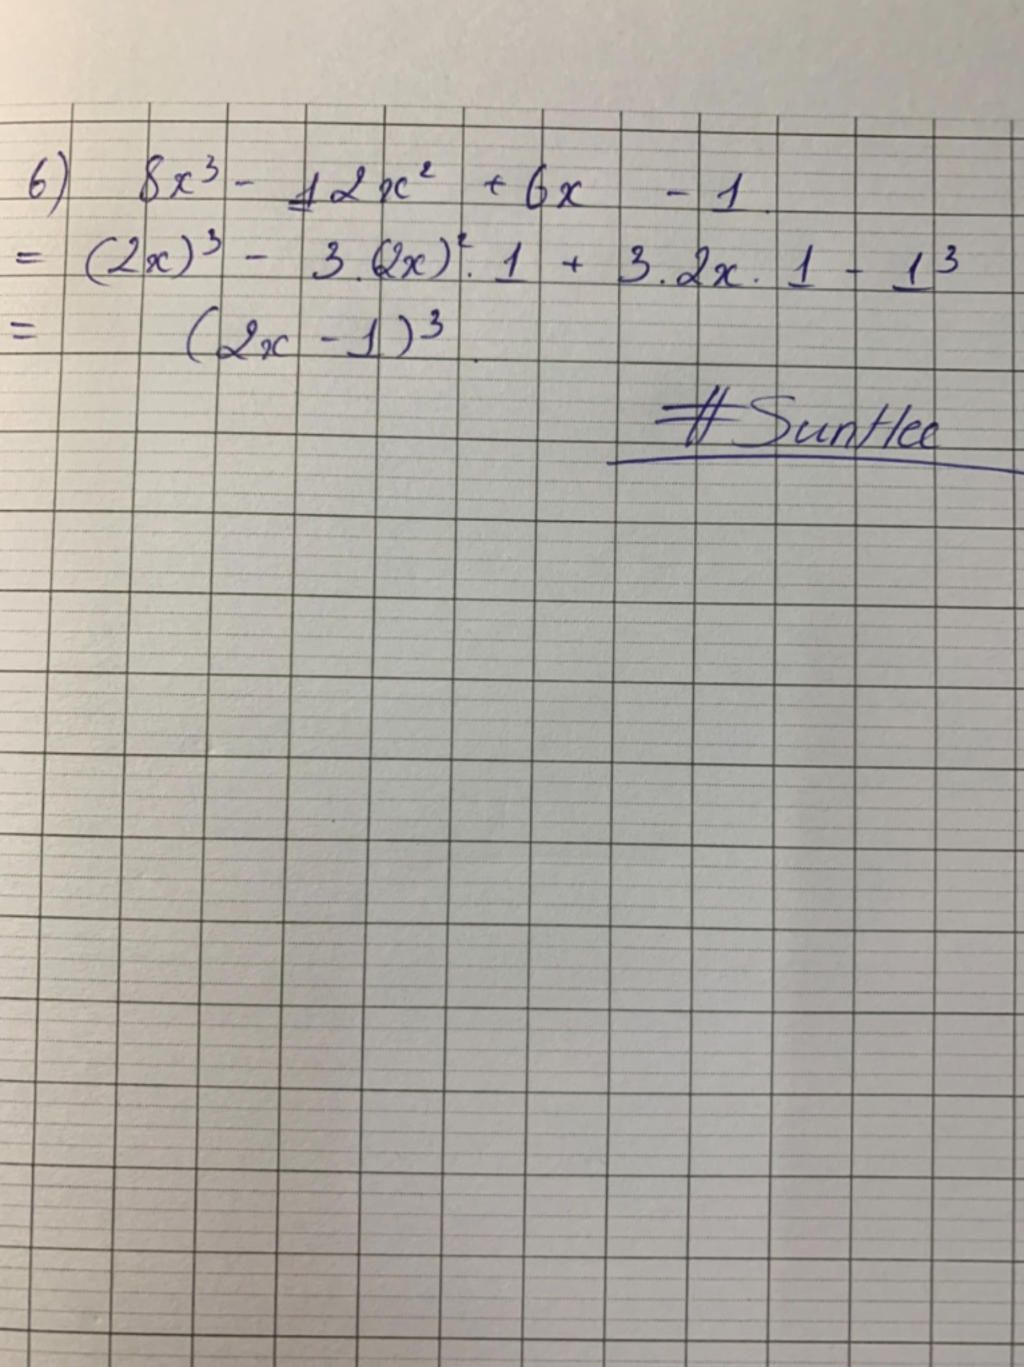 6) 8x³ - 12x² + 6x - 1
= (2x)³ - 3.(2x)².1 + 3.2x.1 - 1³
= (2x - 1)³.
#SunHee